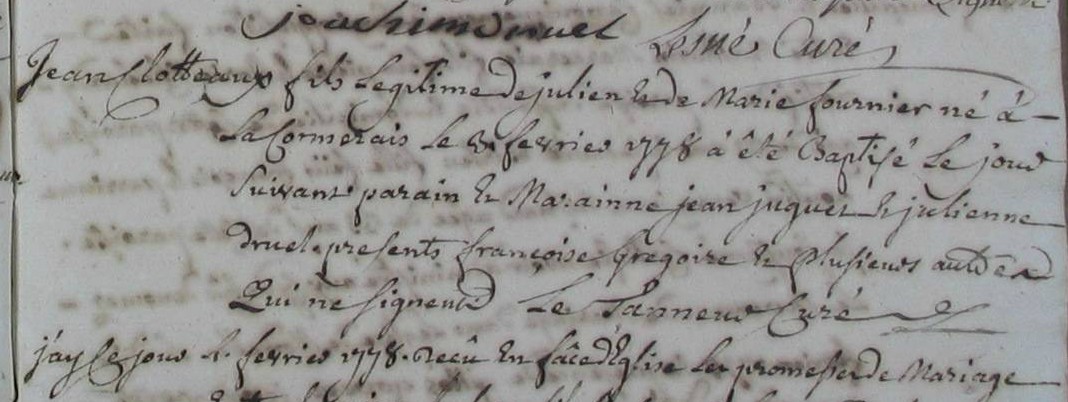 joachim druel Lesné Curé
Jean Clotteaux fils Legitime de julien & de Marie fournier né à
La Cormerais le 8. fevrier 1778 a été Baptisé Le jour
Suivant parain & Marainne jean juguet & julienne
druel. presents françoise Gregoire & plusieurs autres
Qui ne signent Le Tanneur Curé
j'ay ce jour fevrier 1778. recû En fâce d'Eglise Les promesses de Mariage